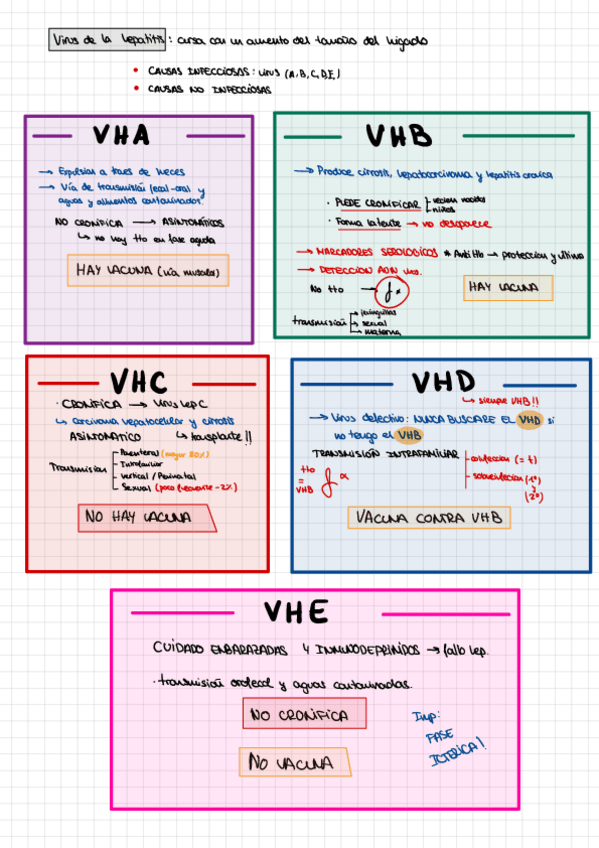 Virus de la hepatitis: cursa con un aumento del tamaño del hígado
• CAUSAS INFECCIOSAS: virus (A,B,C,D,E)
• CAUSAS NO INFECCIOSAS
VHA
→ Expulsion a traes de heces
→ Vía de transmisión fecal-oral y
aguas y alimentos contaminados.
NO CRONIFICA → ASINTOMÁTICOS
↳ no hay tto en fase aguda
HAY VACUNA (vía muscular)
VHB
→ Produce cirrosis, hepatocarcinoma y hepatitis cronica
· PUEDE CRONIFICAR
recien nacidos
niños
· Forma latente → no desaparece
→ MARCADORES SEROLOGICOS * Anti Hb → proteccion y ultimo
→ DETECCION ADN virus.
No tto →
HAY VACUNA
transmisión
→ jeringuillas
→ sexual
→ materna
VHC
· CRONIFICA → Virus hep C
↳ carcinoma hepatocelular y cirrosis
ASINTOMATICO ↳ transplante!!
Transmision
- Parenteral (mayor 80%)
- Intrafamiliar
- vertical / Perinatal
- Sexual (poco frecuente - 2%)
NO HAY VACUNA
VHD
↳ siempre VHB!!
→ Virus defectivo: NUNCA BUSCARE EL VHD si
no tengo el VHB
TRANSMISIÓN INTRAFAMILIAR
- coinfeccion (= t)
- sobreinfeccion (1º)
(2º)
tto
=
VHB
α
VACUNA CONTRA VHB
VHE
CUIDADO EMBARAZADAS Y INMUNODEPRIMIDOS → fallo hep.
· transmisión orofecal y aguas contaminadas.
NO CRONIFICA
NO VACUNA
Imp:
FASE
ICTERICA!